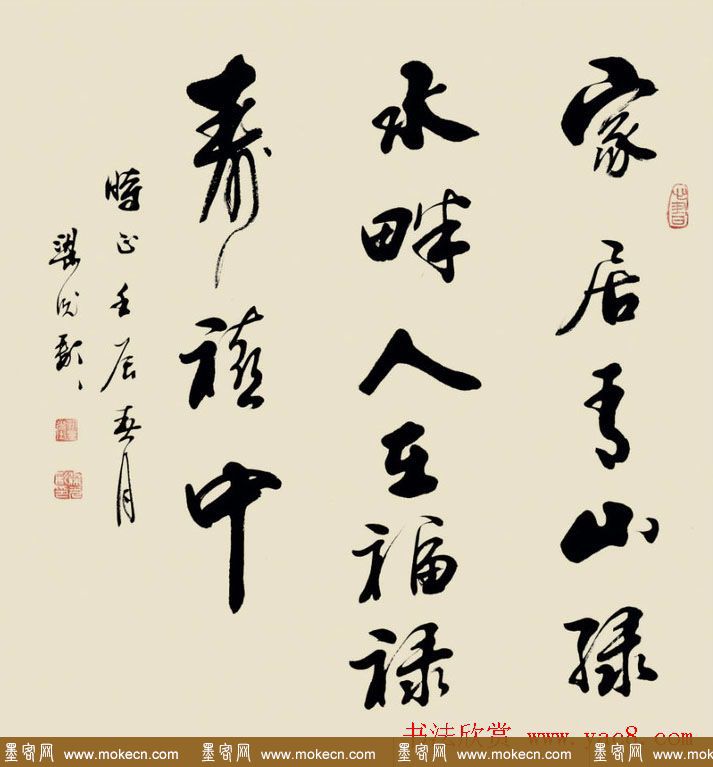 家居青山绿
水畔人在福禄
寿禧中
时正壬辰春月
书法欣赏 www.yac8.com
墨客网 www.mokecn.com 墨客网 www.mokecn.com 墨客网 www.mokecn.com 墨客网